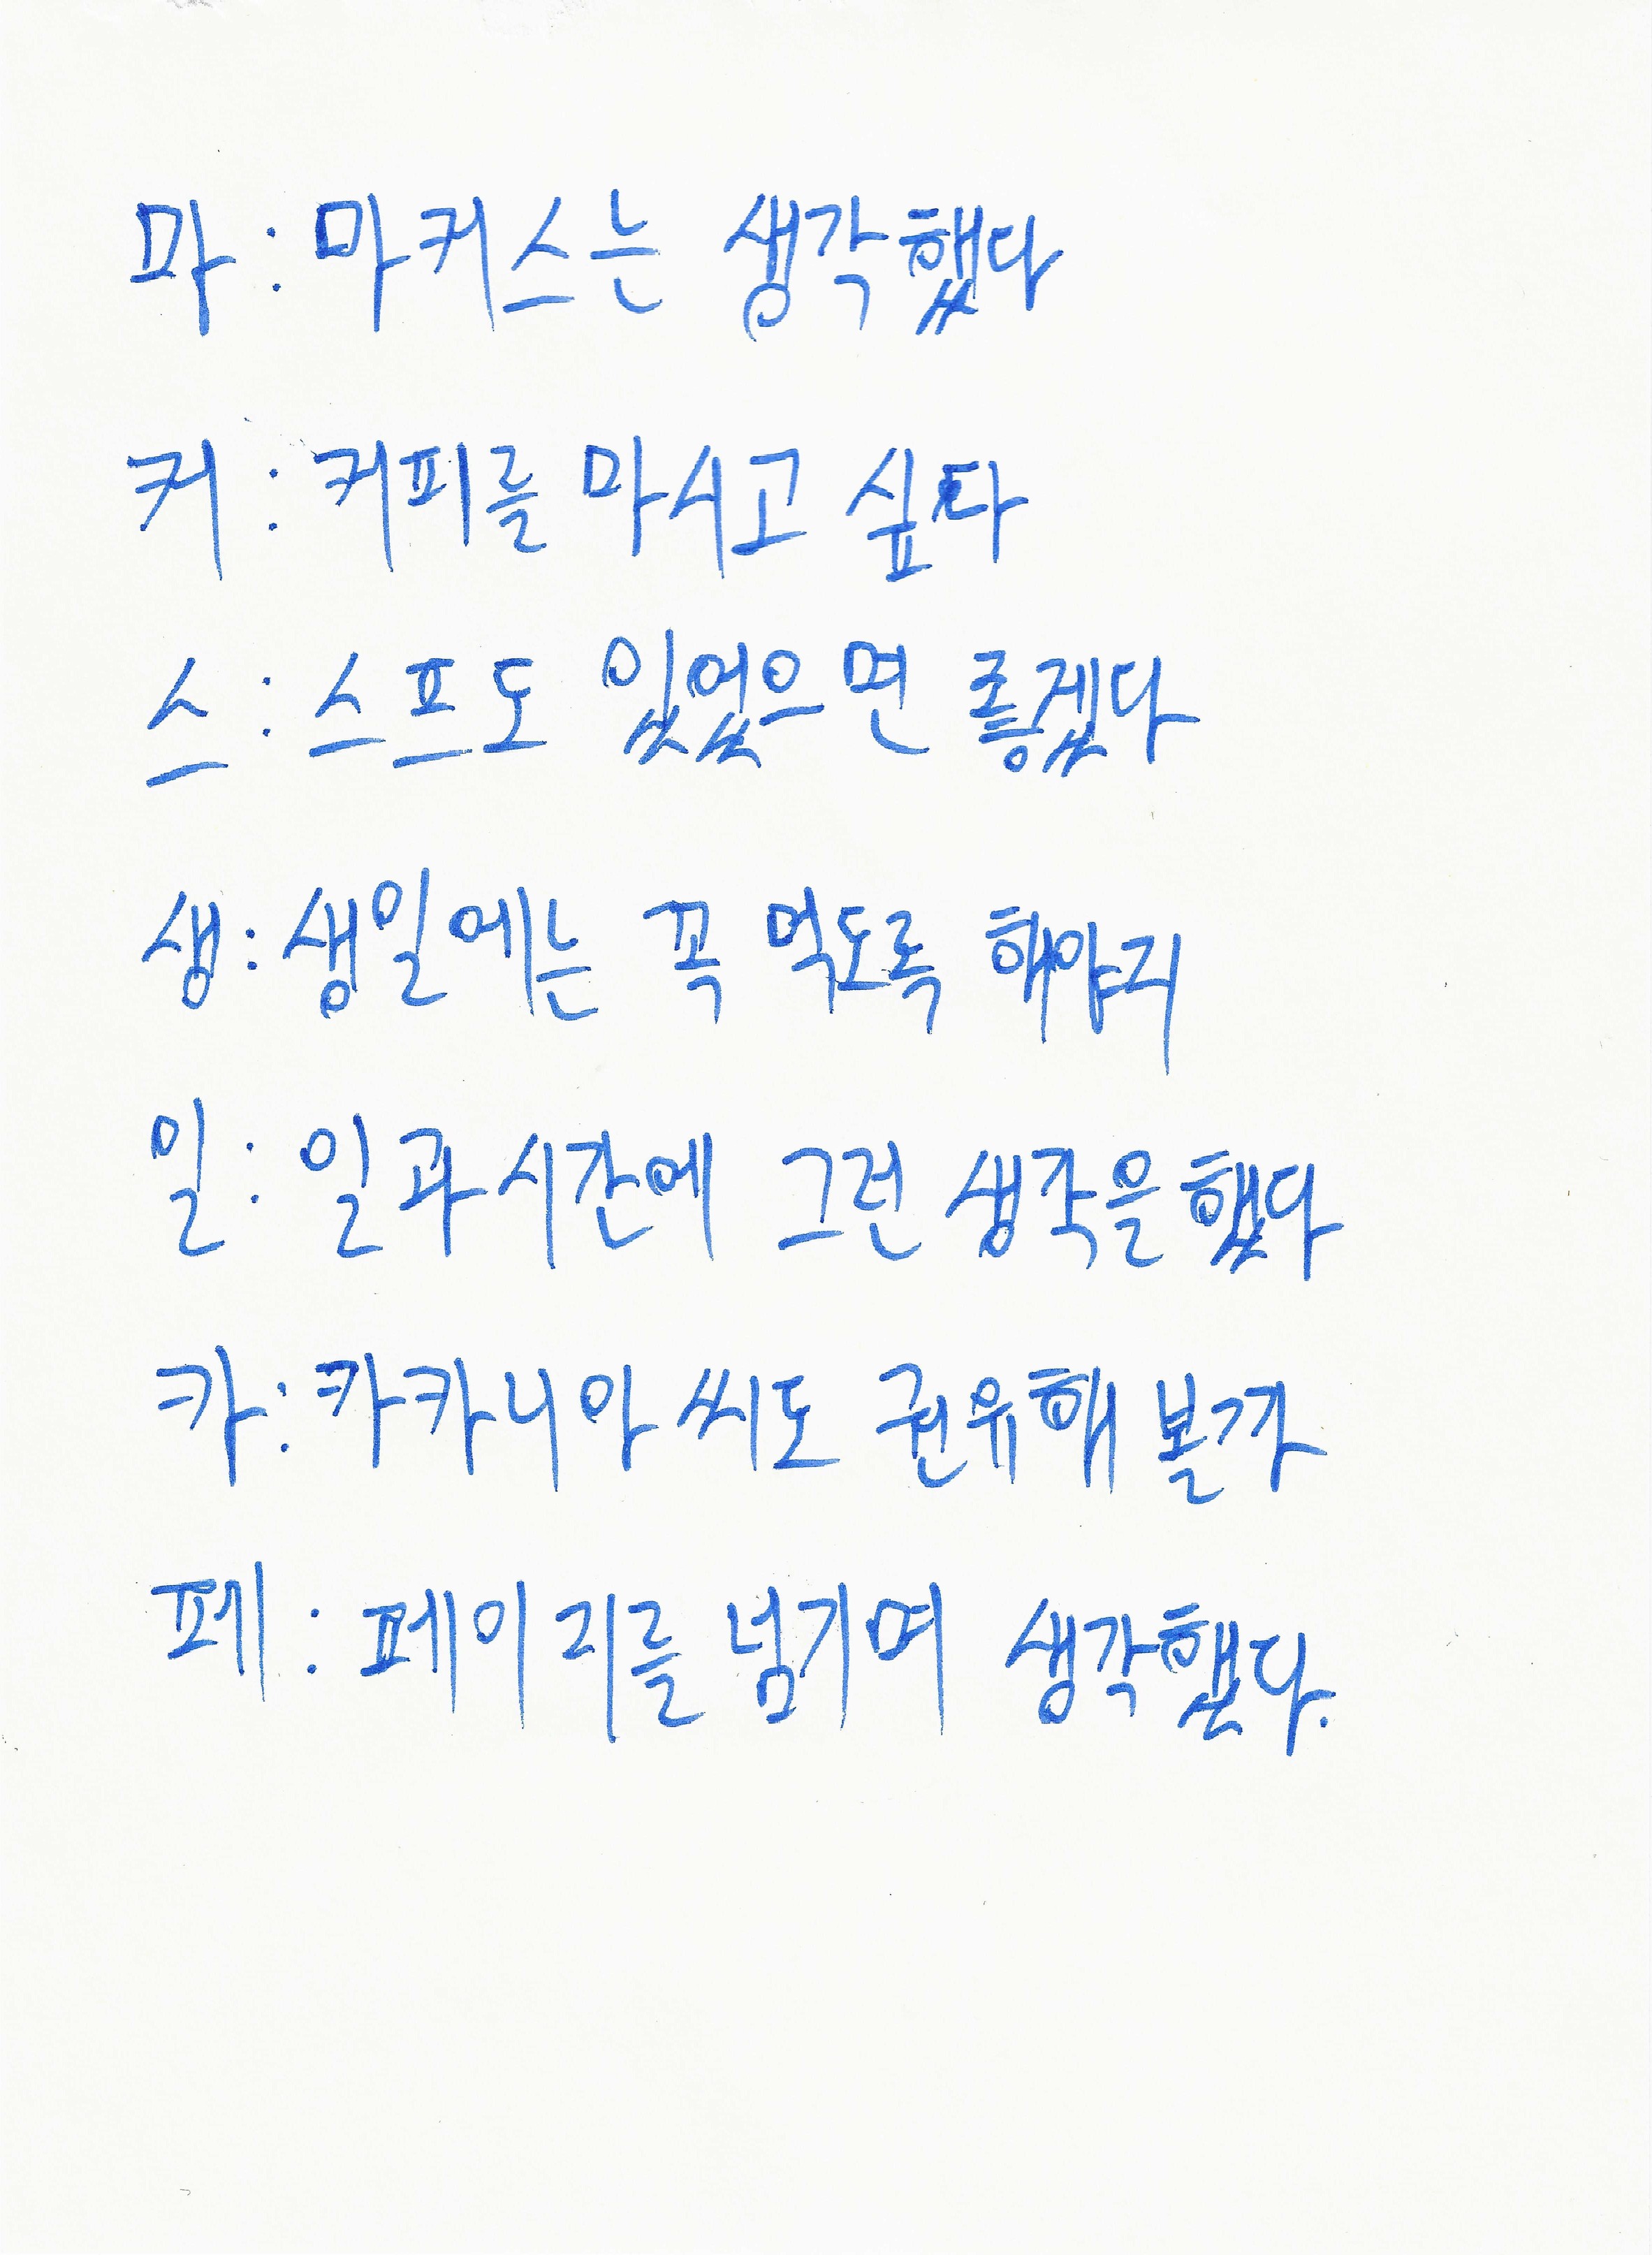 마 : 마커스는 생각했다
커 : 커피를 마시고 싶다
스 : 스프도 있었으면 좋겠다
생 : 생일에는 꼭 먹도록 해야지
일 : 일과시간에 그런 생각을했다
카 : 카카니아 씨도 권유해 볼까
페 : 페이지를 넘기며 생각했다.